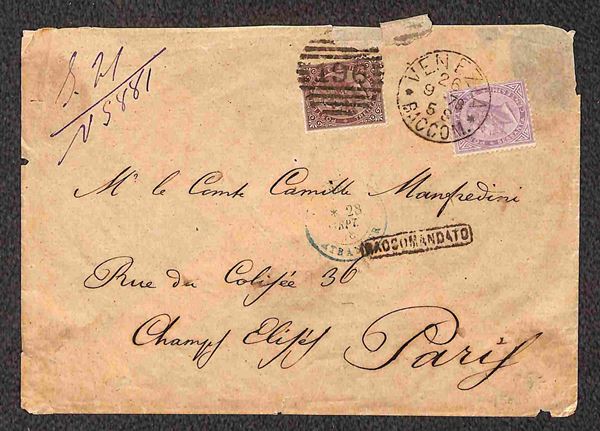 N 5881
196
VENEZIA
26
9
RACCOM.
Mr le Comte Camille Manfredini
28
SEPT.
ETRANGER
RACCOMANDATO
Rue du Colisée 36
Champs Elisés Paris